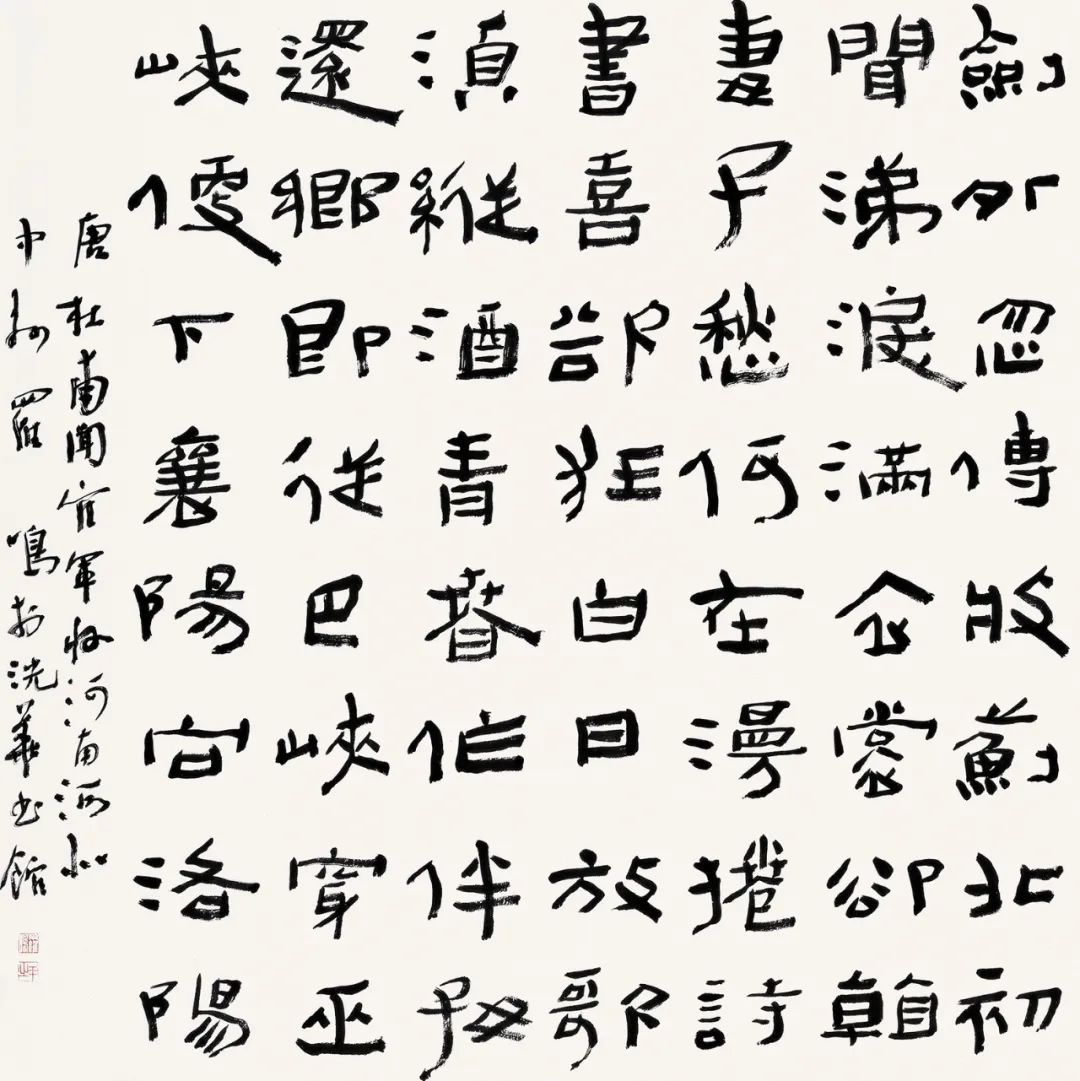 劍外忽傳收薊北初
聞涕淚滿衣裳卻看
妻子愁何在漫捲詩
書喜欲狂白日放歌
湏縱酒青春作伴好
還鄉即從巴峽穿巫
峽便下襄陽向洛陽
唐杜甫聞官軍收河南河北
中州羅鳴於洗華书館